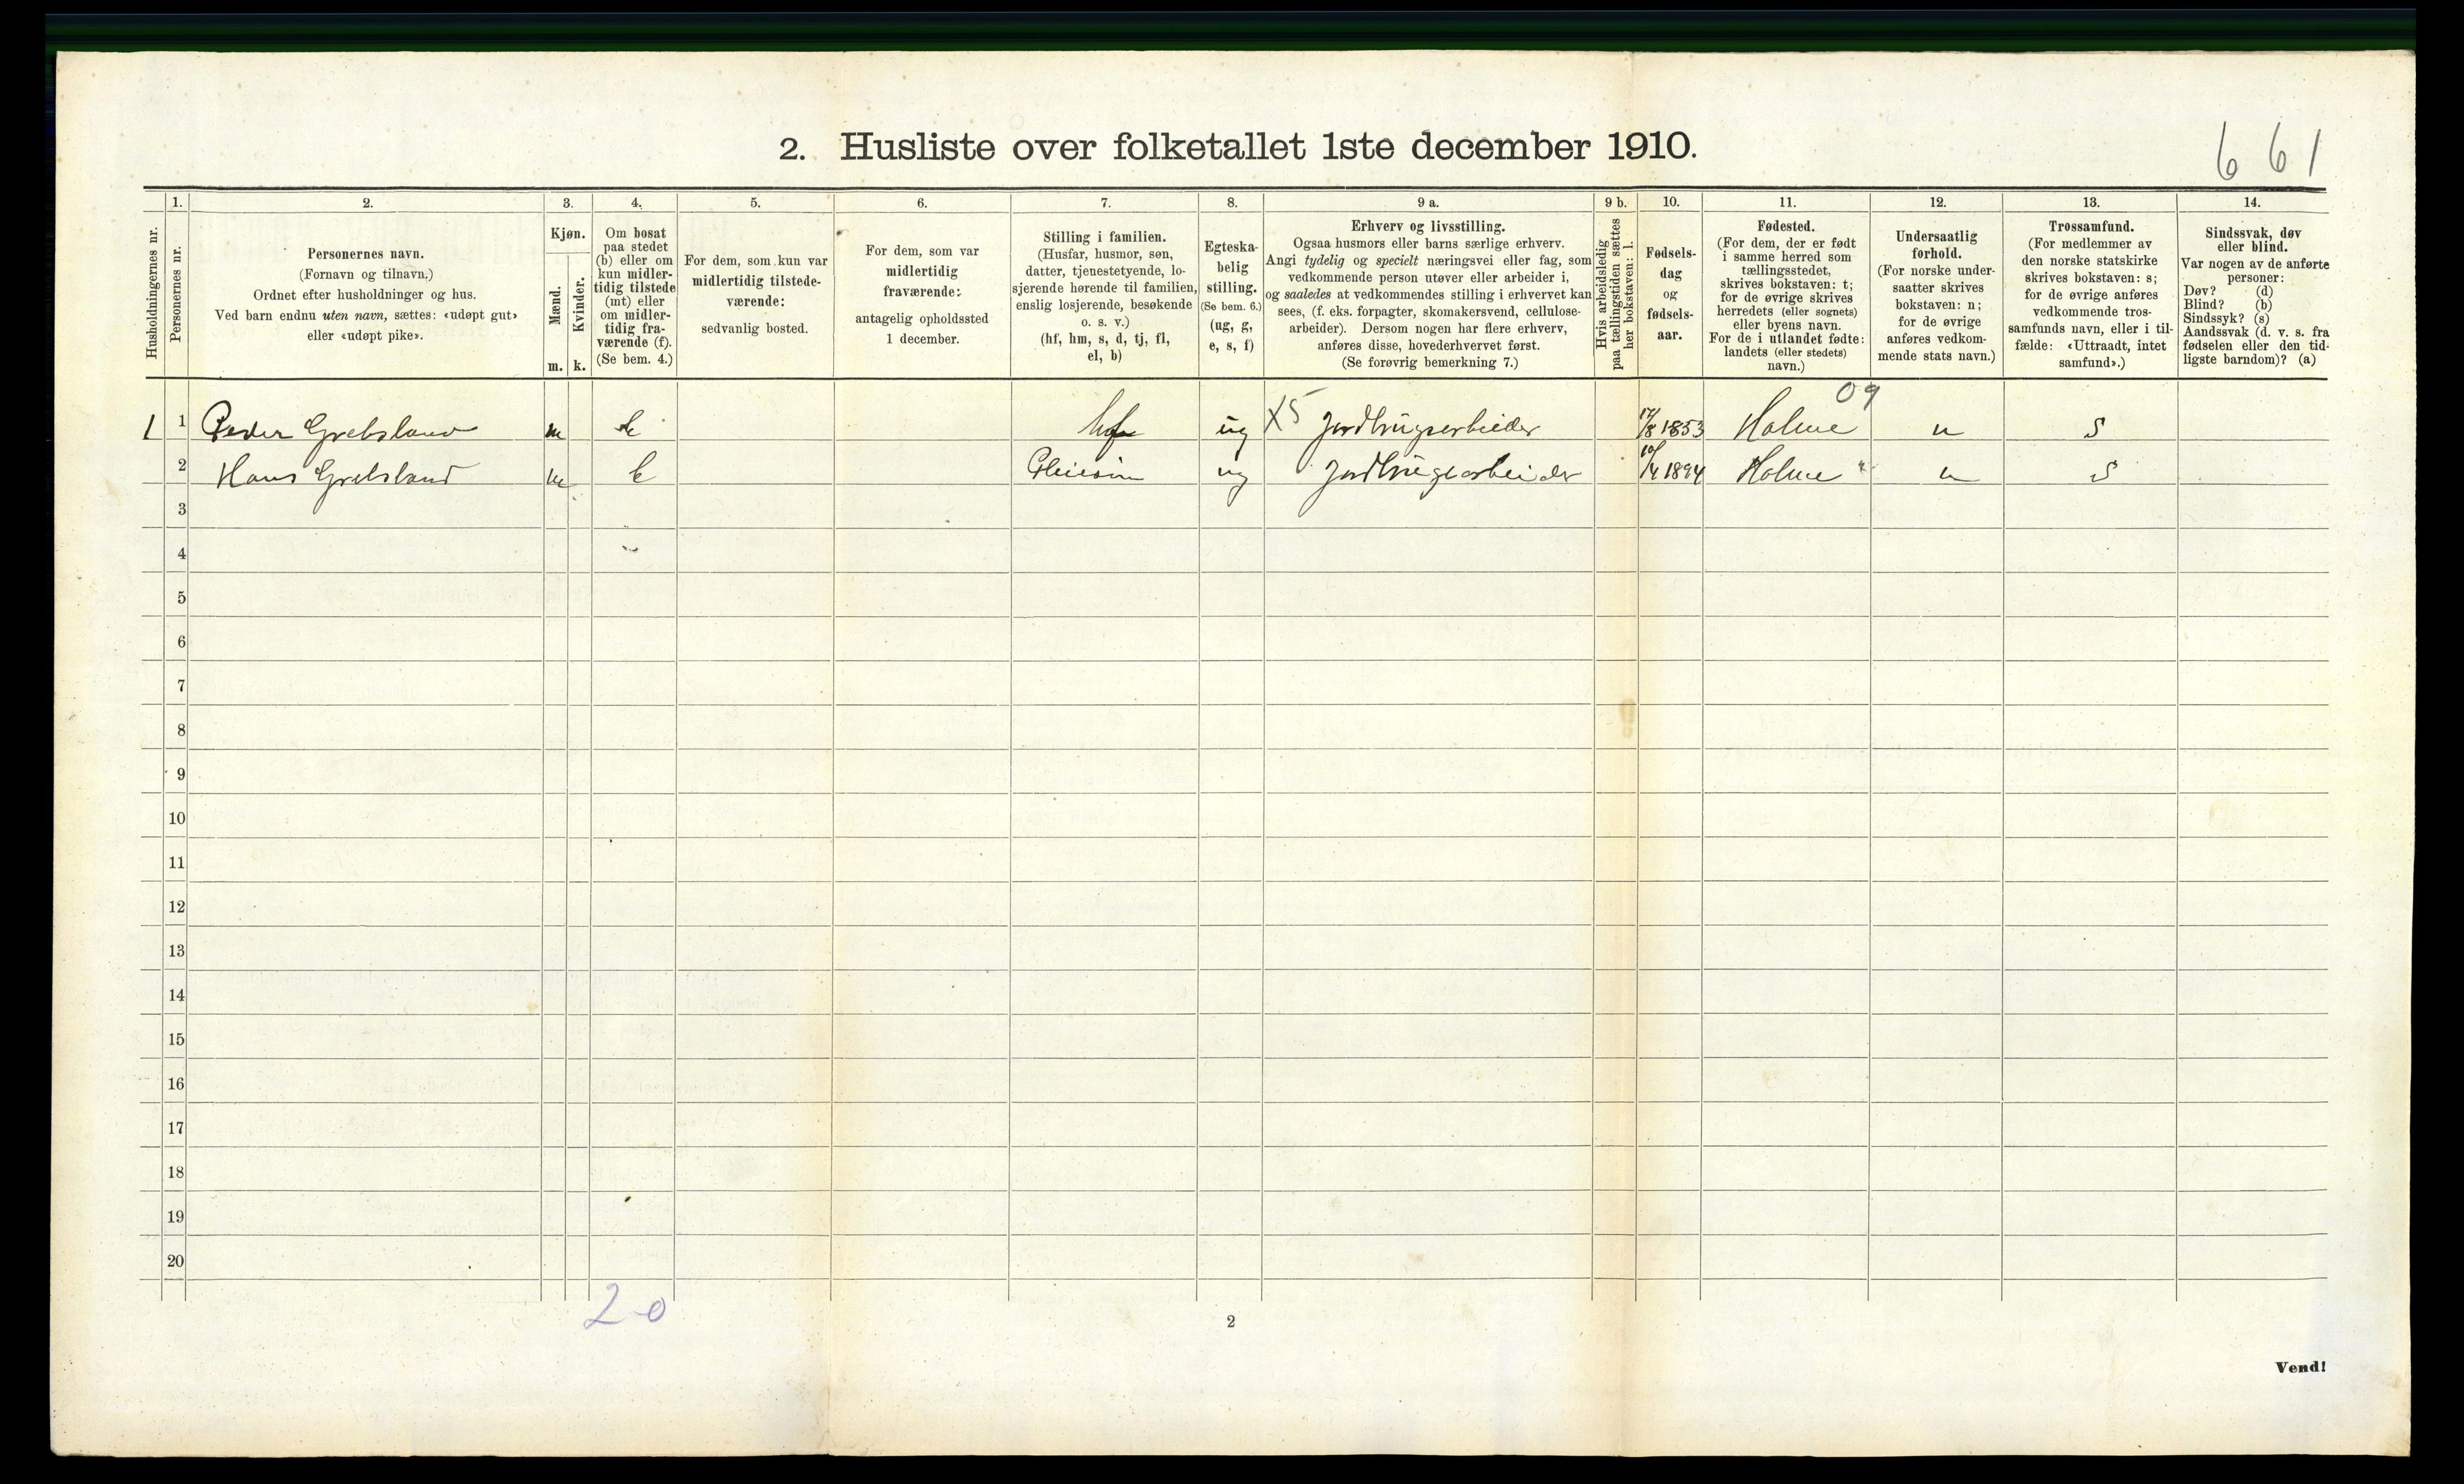 2. Husliste over folketallet 1ste december 1910.
6 61
Husholdningernes nr.
1.
Personernes nr.
2.
Personernes navn.
(Fornavn og tilnavn.)
Ordnet efter husholdninger og hus.
Ved barn endnu uten navn, sættes: «udøpt gut»
eller «udøpt pike».
3.
Kjøn.
Mænd.
m.
Kvinder.
k.
4.
Om bosat
paa stedet
(b) eller om
kun midler-
tidig tilstede
(mt) eller
om midler-
tidig fra-
værende (f).
(Se bem. 4.)
5.
For dem, som kun var
midlertidig tilstede-
værende:
sedvanlig bosted.
6.
For dem, som var
midlertidig
fraværende:
antagelig opholdssted
1 december.
7.
Stilling i familien.
(Husfar, husmor, søn,
datter, tjenestetyende, lo-
sjerende hørende til familien,
enslig losjerende, besøkende
o. s. v.)
(hf, hm, s, d, tj, fl,
el, b)
8.
Egteska-
belig
stilling.
(Se bem. 6.)
(ug, g,
e, s, f)
9 a.
Erhverv og livsstilling.
Ogsaa husmors eller barns særlige erhverv.
Angi tydelig og specielt næringsvei eller fag, som
vedkommende person utøver eller arbeider i,
og saaledes at vedkommendes stilling i erhvervet kan
sees, (f. eks. forpagter, skomakersvend, cellulose-
arbeider). Dersom nogen har flere erhverv,
anføres disse, hovederhvervet først.
(Se forøvrig bemerkning 7.)
9 b.
Hvis arbeidsledig
paa tællingstiden sættes
her bokstaven: l.
10.
Fødsels-
dag
og
fødsels-
aar.
11.
Fødested.
(For dem, der er født
i samme herred som
tællingsstedet,
skrives bokstaven: t;
for de øvrige skrives
herredets (eller sognets)
eller byens navn.
For de i utlandet fødte:
landets (eller stedets)
navn.)
12.
Undersaatlig
forhold.
(For norske under-
saatter skrives
bokstaven: n;
for de øvrige
anføres vedkom-
mende stats navn.)
13.
Trossamfund.
(For medlemmer av
den norske statskirke
skrives bokstaven: s;
for de øvrige anføres
vedkommende tros-
samfunds navn, eller i til-
fælde: «Uttraadt, intet
samfund».)
14.
Sindssvak, døv
eller blind.
Var nogen av de anførte
personer:
Døv? (d)
Blind? (b)
Sindssyk? (s)
Aandssvak (d. v. s. fra
fødselen eller den tid-
ligste barndom)? (a)
09
1 1 Peder Grebsland m b hf ug X5 Jordbrugsarbeider 17/8 1853 Holme n s
2 Hans Grebsland m b Pleiesøn ug Jordbrugsarbeider 10/4 1894 Holme n s
3
4
5
6
7
8
9
10
11
12
13
14
15
16
17
18
19
20
2-0
2
Vend!